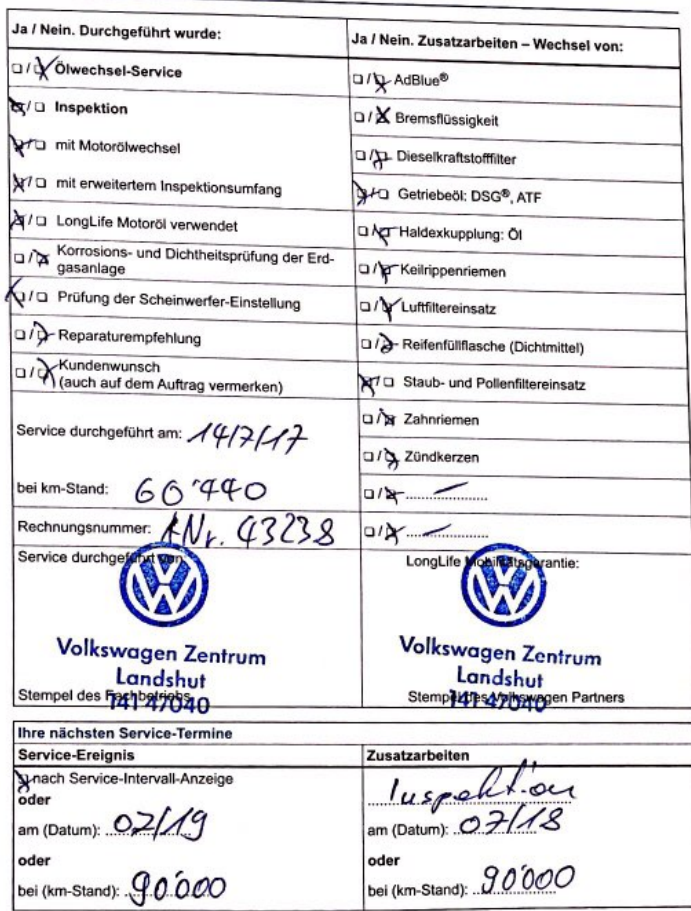 Ja / Nein. Durchgeführt wurde:
Ölwechsel-Service
Inspektion
mit Motorölwechsel
mit erweitertem Inspektionsumfang
LongLife Motoröl verwendet
Korrosions- und Dichtheitsprüfung der Erd-
gasanlage
Prüfung der Scheinwerfer-Einstellung
Reparaturempfehlung
Kundenwunsch
(auch auf dem Auftrag vermerken)
Service durchgeführt am: 14/7/17
bei km-Stand: 60'440
Rechnungsnummer: ANr. 43238
Service durchgeführt von
Volkswagen Zentrum
Landshut
141 47040
Stempel des Fachbetriebs
Ja / Nein. Zusatzarbeiten – Wechsel von:
AdBlue®
Bremsflüssigkeit
Dieselkraftstofffilter
Getriebeöl: DSG®, ATF
Haldexkupplung: Öl
Keilrippenriemen
Luftfiltereinsatz
Reifenfüllflasche (Dichtmittel)
Staub- und Pollenfiltereinsatz
Zahnriemen
Zündkerzen
LongLife Mobilitätsgarantie:
Volkswagen Zentrum
Landshut
141 47040
Stempel des Volkswagen Partners
Ihre nächsten Service-Termine
Service-Ereignis
nach Service-Intervall-Anzeige
oder
am (Datum): 07/19
oder
bei (km-Stand): 90'000
Zusatzarbeiten
Inspektion
am (Datum): 07/18
oder
bei (km-Stand): 90'000